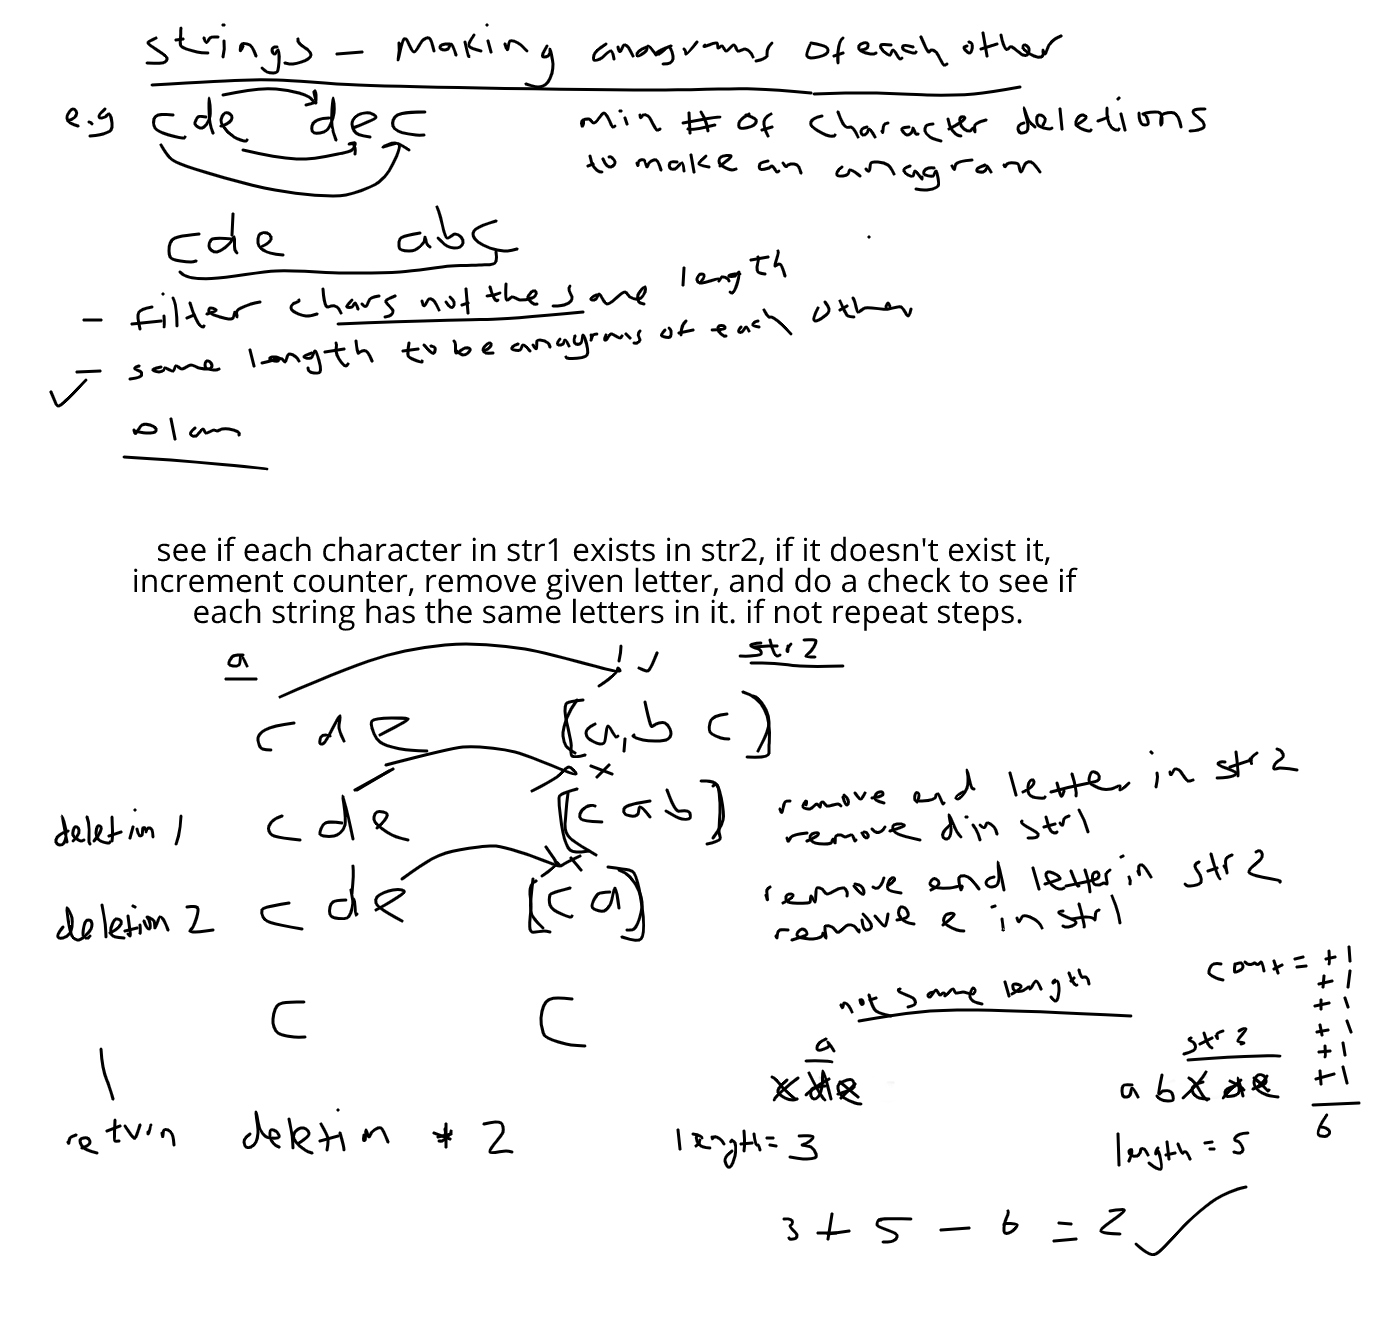 strings - Making anagrams of each other
e.g cde dec
min # of character deletions
to make an anagram
cde abc
- filter chars not the same length
- same length to be anagrams of each other
plan
see if each character in str1 exists in str2, if it doesn't exist it,
increment counter, remove given letter, and do a check to see if
each string has the same letters in it. if not repeat steps.
a str2
c d e [a, b c]
deletion 1 c d e [c a b]
remove end letter in str 2
remove d in str1
deletion 2 c d e [c a]
remove end letter in str 2
remove e in str1
c c
return deletion * 2
not same length
count = +1
+1
+1
+1
+1
+1
6
a str2
cde abcde
length = 3 length = 5
3 + 5 - 6 = 2